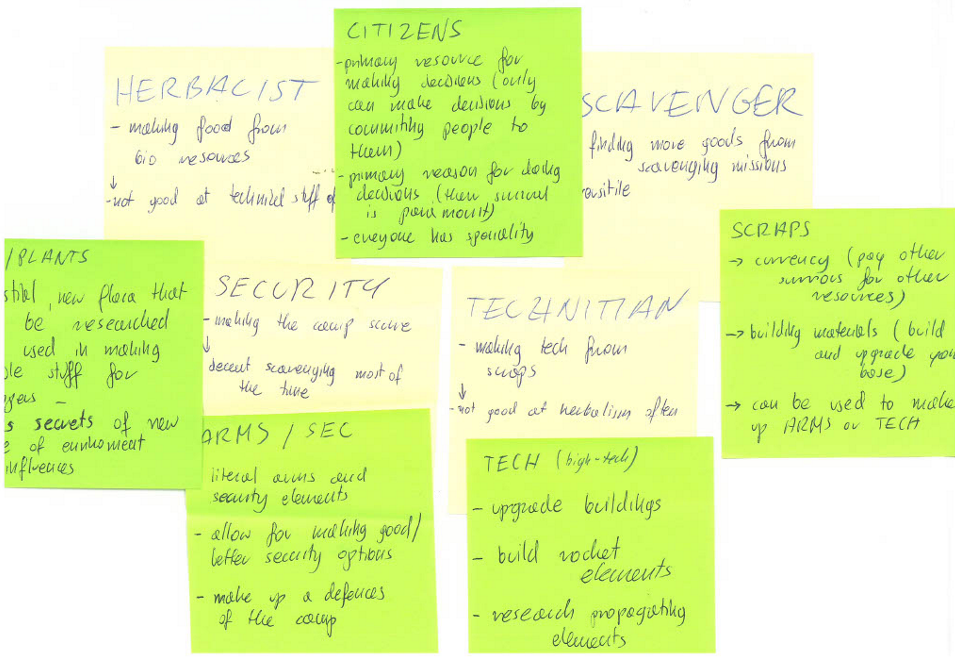 CITIZENS
- primary resource for
making decisions (only
can make decisions by
commiting people to
them)
- primary reason for doing
decisions (their survival
is paramount)
- everyone has speciality
HERBACIST
- making food from
bio resources
- not good at technical stuff of
SCAVENGER
finding more goods from
scavenging missions
/PLANTS
new flora that
be researched
used in making
stuff for
secrets of new
of
influences
SECURITY
- making the camp secure
decent scavenging most of
the time
TECHNITIAN
- making tech from
scraps
- not good at herbalism often
SCRAPS
→ currency (pay other
for other
resources)
→ building materials (build
and upgrade your
base)
→ can be used to make
up ARMS or TECH
ARMS / SEC
literal arms and
security elements
- allow for making good/
better security options
- make up a defences
of the camp
TECH (high-tech)
- upgrade buildings
- build rocket
elements
- research propagating
elements